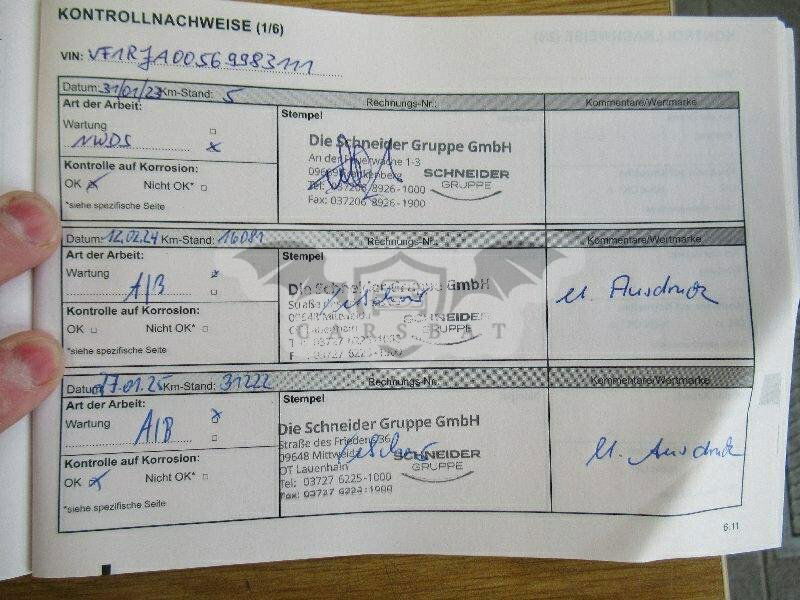 KONTROLLNACHWEISE (1/6)
VIN: VF1RJA00569983111
Datum: 31/01/23 Km-Stand: 5 Rechnungs-Nr.: Kommentare/Wertmarke
Art der Arbeit:
Wartung
NWDS x
Kontrolle auf Korrosion:
OK x Nicht OK* □
*siehe spezifische Seite
Stempel
Die Schneider Gruppe GmbH
An der Feuerwache 1-3
Tel: 037206 8926-1000
Fax: 037206 8926-1900
SCHNEIDER
GRUPPE
Datum: 12.02.24 Km-Stand: 16081 Rechnungs-Nr.: Kommentare/Wertmarke
Art der Arbeit:
Wartung x
A/B □
Kontrolle auf Korrosion:
OK □ Nicht OK* □
*siehe spezifische Seite
Stempel
Die Schneider Gruppe GmbH
09648 Mittweida
SCHNEIDER
GRUPPE
CARSBAT
lt. Ausdruck
Datum: 27.01.25 Km-Stand: 31222 Rechnungs-Nr. Kommentare/Wertmarke
Art der Arbeit:
Wartung x
A/B □
Kontrolle auf Korrosion:
OK x Nicht OK* □
*siehe spezifische Seite
Stempel
Die Schneider Gruppe GmbH
Straße des Friedens 36
09648 Mittweida
OT Lauenhain
Tel: 03727 6225-1000
Fax: 03727 6224-1900
SCHNEIDER
GRUPPE
lt. Ausdruck
6.11